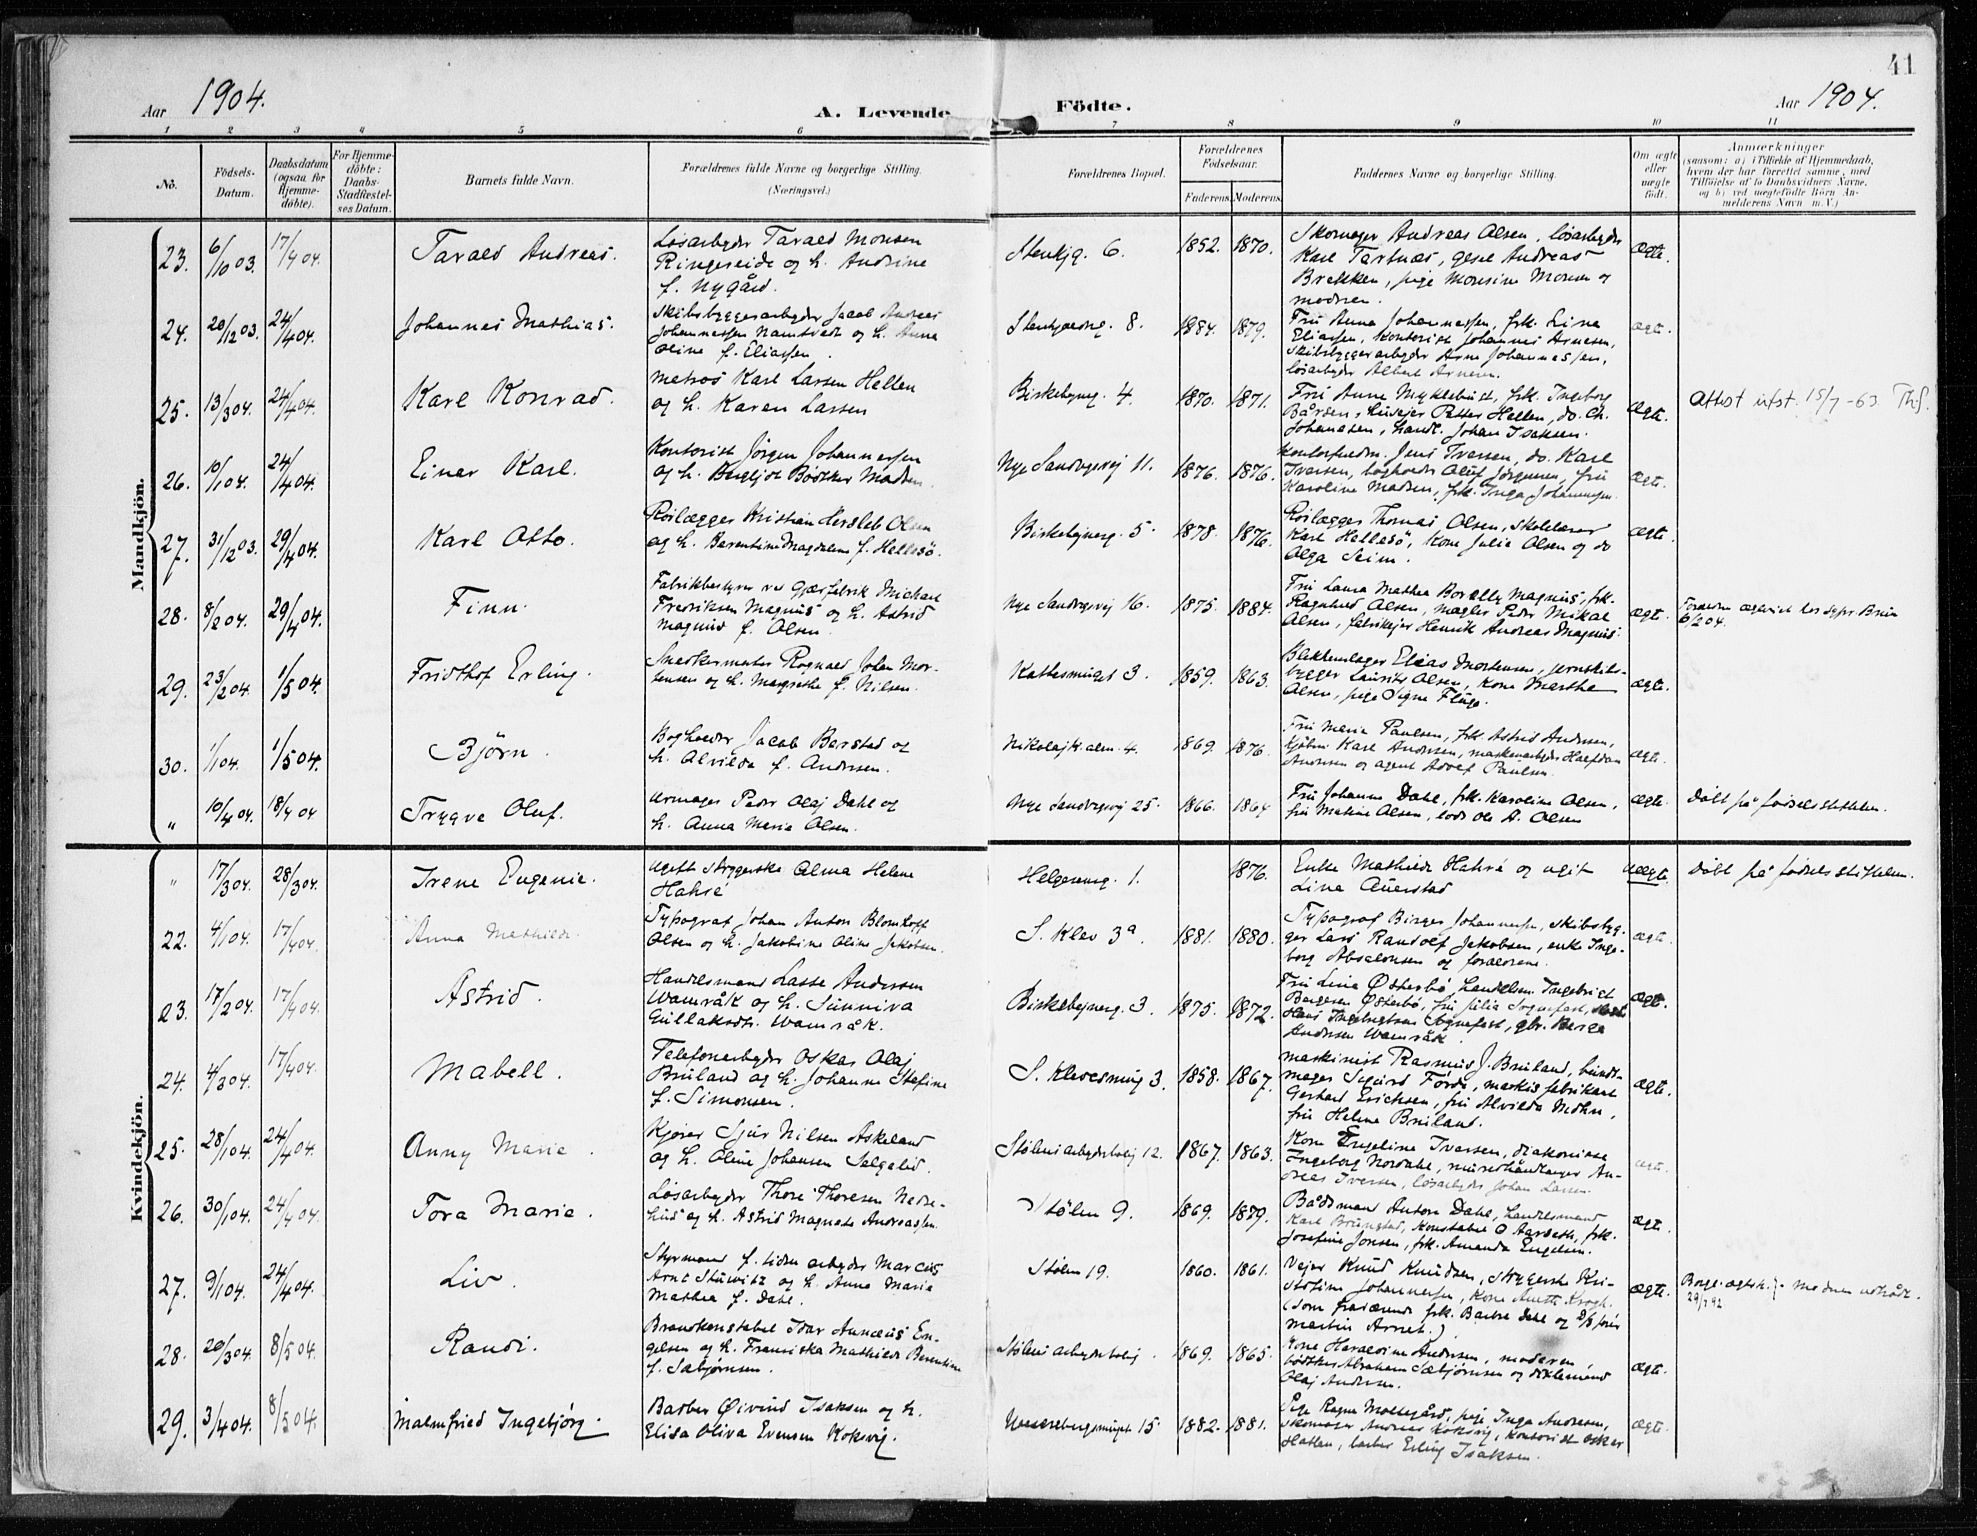 41
Aar 1904.
A. Levende Födte.
Aar 1904.
1 2 3 4 5 6 7 8 9 10 11
No.
Födsels-
Datum.
Daabsdatum
(ogsaa for
Hjemme-
döbte).
For Hjemme-
döbte:
Daabs-
Stadfæstel-
ses Datum.
Barnets fulde Navn.
Forældrenes fulde Navne og borgerlige Stilling.
(Næringsvei.)
Forældrenes Bopæl.
Forældrenes
Födselsaar.
Faderens Moderens
Faddernes Navne og borgerlige Stilling.
Om ægte
eller
uægte
födt.
Anmærkninger
(saasom: a) i Tilfælde af Hjemmedaab,
hvem der har forrettet samme, med
Tilföielse af to Daabsvidners Navne,
og b) ved uægtefödte Börn An-
melderens Navn m. V.)
Mandkjön.
23. 6/10 03. 17/4 04. Tarald Andreas.
Løsarbeyder Tarald Monsen
Ringereide og h. Andrine
f. Nygård.
6. 1852. 1870.
Skomager Andreas Olsen, løsarbeyder
Karl Tartnæs, gesel Andreas
Brekken, pige Monsine Monsen og
modren.
ægte.
24. 20/12 03. 24/4 04. Johannes Mathias.
Skibsbyggerarbeyder Jacob Andreas
Johannessen Namtvedt og h. Anna
Oline f. Eliassen.
8. 1884. 1879.
Fru Anna Johannessen, frk. Lina
Eliassen, kontorist Johannes Arnesen,
skibsbyggerarbeyder Arne Johannessen,
løsarbeyder Albert Arnesen.
ægte.
25. 13/3 04. 24/4 04. Karl Konrad.
Matros Karl Larsen Hellen
og h. Karen Larsen
Birkebeynerg. 4. 1870. 1871.
Fru Anne Myklebust, frk. Ingeborg
Bårsen, husejer Petter Hellen, do. Ch.
Johannesen, handl. Johan Isaksen.
ægte.
Attest utst. 15/7-63 Th.S.
26. 10/1 04. 24/4 04. Einar Karl.
Kontorist Jörgen Johannessen
og h. Bergljot Bödtker Madsen.
Nye Sandvigsvej 11. 1876. 1876.
Kontorfuldm. Jens Iversen, do. Karl
Iversen, bogholder Oluf Jörgensen, fru
Karoline Madsen, frk. Inga Johannessen.
ægte.
27. 31/12 03. 29/4 04. Karl Otto.
Rörlægger Kristian Hersleb Olsen
og h. Berentine Magdalene f. Hellesö.
Birkebeynerg. 5. 1878. 1876.
Rörlægger Thomas Olsen, skolelærer
Karl Hellesö, kone Julie Olsen og do
Olga Seim.
ægte.
28. 8/2 04. 29/4 04. Finn.
Fabrikbestyrer ved Gjærfabrik Michael
Fredriksen Magnus og h. Astrid
Magnus f. Olsen.
Nye Sandvigsvej 16. 1875. 1884.
Fru Laura Mathea Magnus, frk.
Ragnhild Olsen, mægler Peder Mikal
Olsen, fabrikejer Henrik Andreas Magnus.
ægte.
6/2 04.
29. 23/2 04. 1/5 04. Fridthof Erling.
Snedkermester Rognald Johan Mor-
tensen og h. Margrethe f. Nilsen.
Kattesmuget 3. 1859. 1863.
Blikkenslager Elias Mortensen, jernskib-
bygger Laurits Olsen, kone Marthe
Olsen, pige Signe Fluge.
ægte.
30. 1/1 04. 1/5 04. Björn.
Bogholder Jacob Berstad og
h. Alvilda f. Andersen.
Nikolajk.alm. 4. 1869. 1876.
Fru Maria Paulsen, frk. Astrid Andersen,
Kjöbm. Karl Andersen, maskinarbeyder Halfdan
Andersen og agent Adolf Paulsen.
ægte.
" 10/4 04. 18/4 04 Trygve Oluf.
Urmager Peder Olaj Dahl og
h. Anna Marie Olsen.
Nye Sandvigsvej 25. 1866. 1864
Fru Johanne Dahl, frk. Karoline Olsen,
fru Matine Olsen, lods Ole A. Olsen
ægte.
Döbt på födselsstiftelsen.
Kvindekjön.
" 17/3 04. 28/3 04. Irene Eugenie.
Ugift strygerske Alma Helene
Hahré
Helgesensg. 1. 1876.
Enke Mathilde Hahré og ugift
Lina Auerstad
Uægte.
Döbt på födselsstiftelsen.
22. 4/1 04. 17/4 04. Anna Mathilde.
Typograf Johan Anton Blomhoff
Olsen og h. Jakobine Oline Jakobsen.
S. Klev 3a. 1881. 1880.
Typograf Birger Johannessen, skibsbyg-
ger Lars Randolf Jakobsen, enke Inge-
borg Absalonsen og forældrene.
ægte.
23. 17/2 04. 17/4 04. Astrid.
Handelsmand Lasse Andersen
Wamråk og h. Sunniva
Wamråk.
Birkebeynerg. 3. 1875. 1872.
Fru Lina Østerbö, handelsm. Ingebrigt
Bergesen Østerbö, fru Julia Sognefest,
Hans Ingebrigtsen Sognefest, gbr. Berge
Andersen Wamråk.
ægte.
24. 4/3 04. 17/4 04. Mabell.
Telefonarbeyder Oskar Olaj
Bruland og h. Johanne Stefine
f. Simonsen.
S. Klevesmug 3. 1858. 1867.
Maskinist Rasmus J. Bruland, bundt-
mager Sigurd Förde, markisfabrikant
Gerhard Erichsen, fru Alvilda Mohn,
fru Helene Bruland.
ægte.
25. 28/1 04. 24/4 04. Anny Marie.
Kjører Sjur Nilsen Askeland
og h. Oline Johansen Salgelid.
Stölens arbeyderbolig 12. 1867. 1863.
Kone Engeline Iversen, diakonisse
Ingeborg Nordahl, murerhåndlanger An-
dreas Iversen, løsarbeyder Johan Larsen.
ægte.
26. 30/1 04. 24/4 04. Tora Marie.
Løsarbeyder Thore Thoresen Nedre-
hus og h. Astrid Magnete Andreassen.
Stölen 9. 1869. 1879.
Bådsmand Anton Dahl, handelsmand
Karl Brungstad, konstabel O Aarseth, frk.
Josefine Jonsen, frk. Amanda Engelsen.
ægte.
27. 9/1 04. 24/4 04. Liv.
Styrmand f. tiden arbeyder Marcus
Arnt Stuwitz og h. Anna Marie
Mathea f. Dahl.
Stölen 19. 1860. 1861.
Vejer Knud Knudsen, strygerske Kri-
stine Johannessen, kone Anette Krogh.
(som fraværende frk. Barbra Dahl og
Martin Arnet.)
ægte.
29/7 92
28. 20/3 04. 8/5 04. Randi.
Brandkonstabel Idar Annæus En-
gelsen og h. Franciska Mathilde Berentine
f. Sæbjörnsen.
Stölens arbeyderbolig. 1869. 1865.
Kone Haraldine Andersen, moderen,
bödtker Abraham Sæbjörnsen og
Olaj Andersen.
ægte.
29. 3/4 04. 8/5 04. Malmfried Ingebjörg.
Barber Øivind Isaksen og h.
Elisa Oliva Evensen Koksvig.
15 1882. 1881.
Pige Ragna Mollegård, pige Inga Andresen,
skomager Andreas Koksvig, kontorist Oskar
Hatlen, barber Erling Isaksen.
ægte.